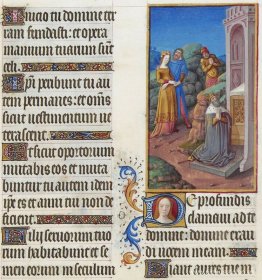 Inicio tu domine ter
ram fundasti: et opera
manuum tuarum sunt
celi.
Ipi peribunt tu au
tem permanes: et omnes
sicut uestimentum ue
terascent.
Et sicut oportorium
mutabis eos et muta
buntur tu autem idem
ipse es et anni tui non de
ficient.
Filij seruorum tuo
rum habitabunt et se
men eorum in seculum
De profundis
clamaui ad te
domine: domine exau
di uocem meam.
Fiant aures tue in